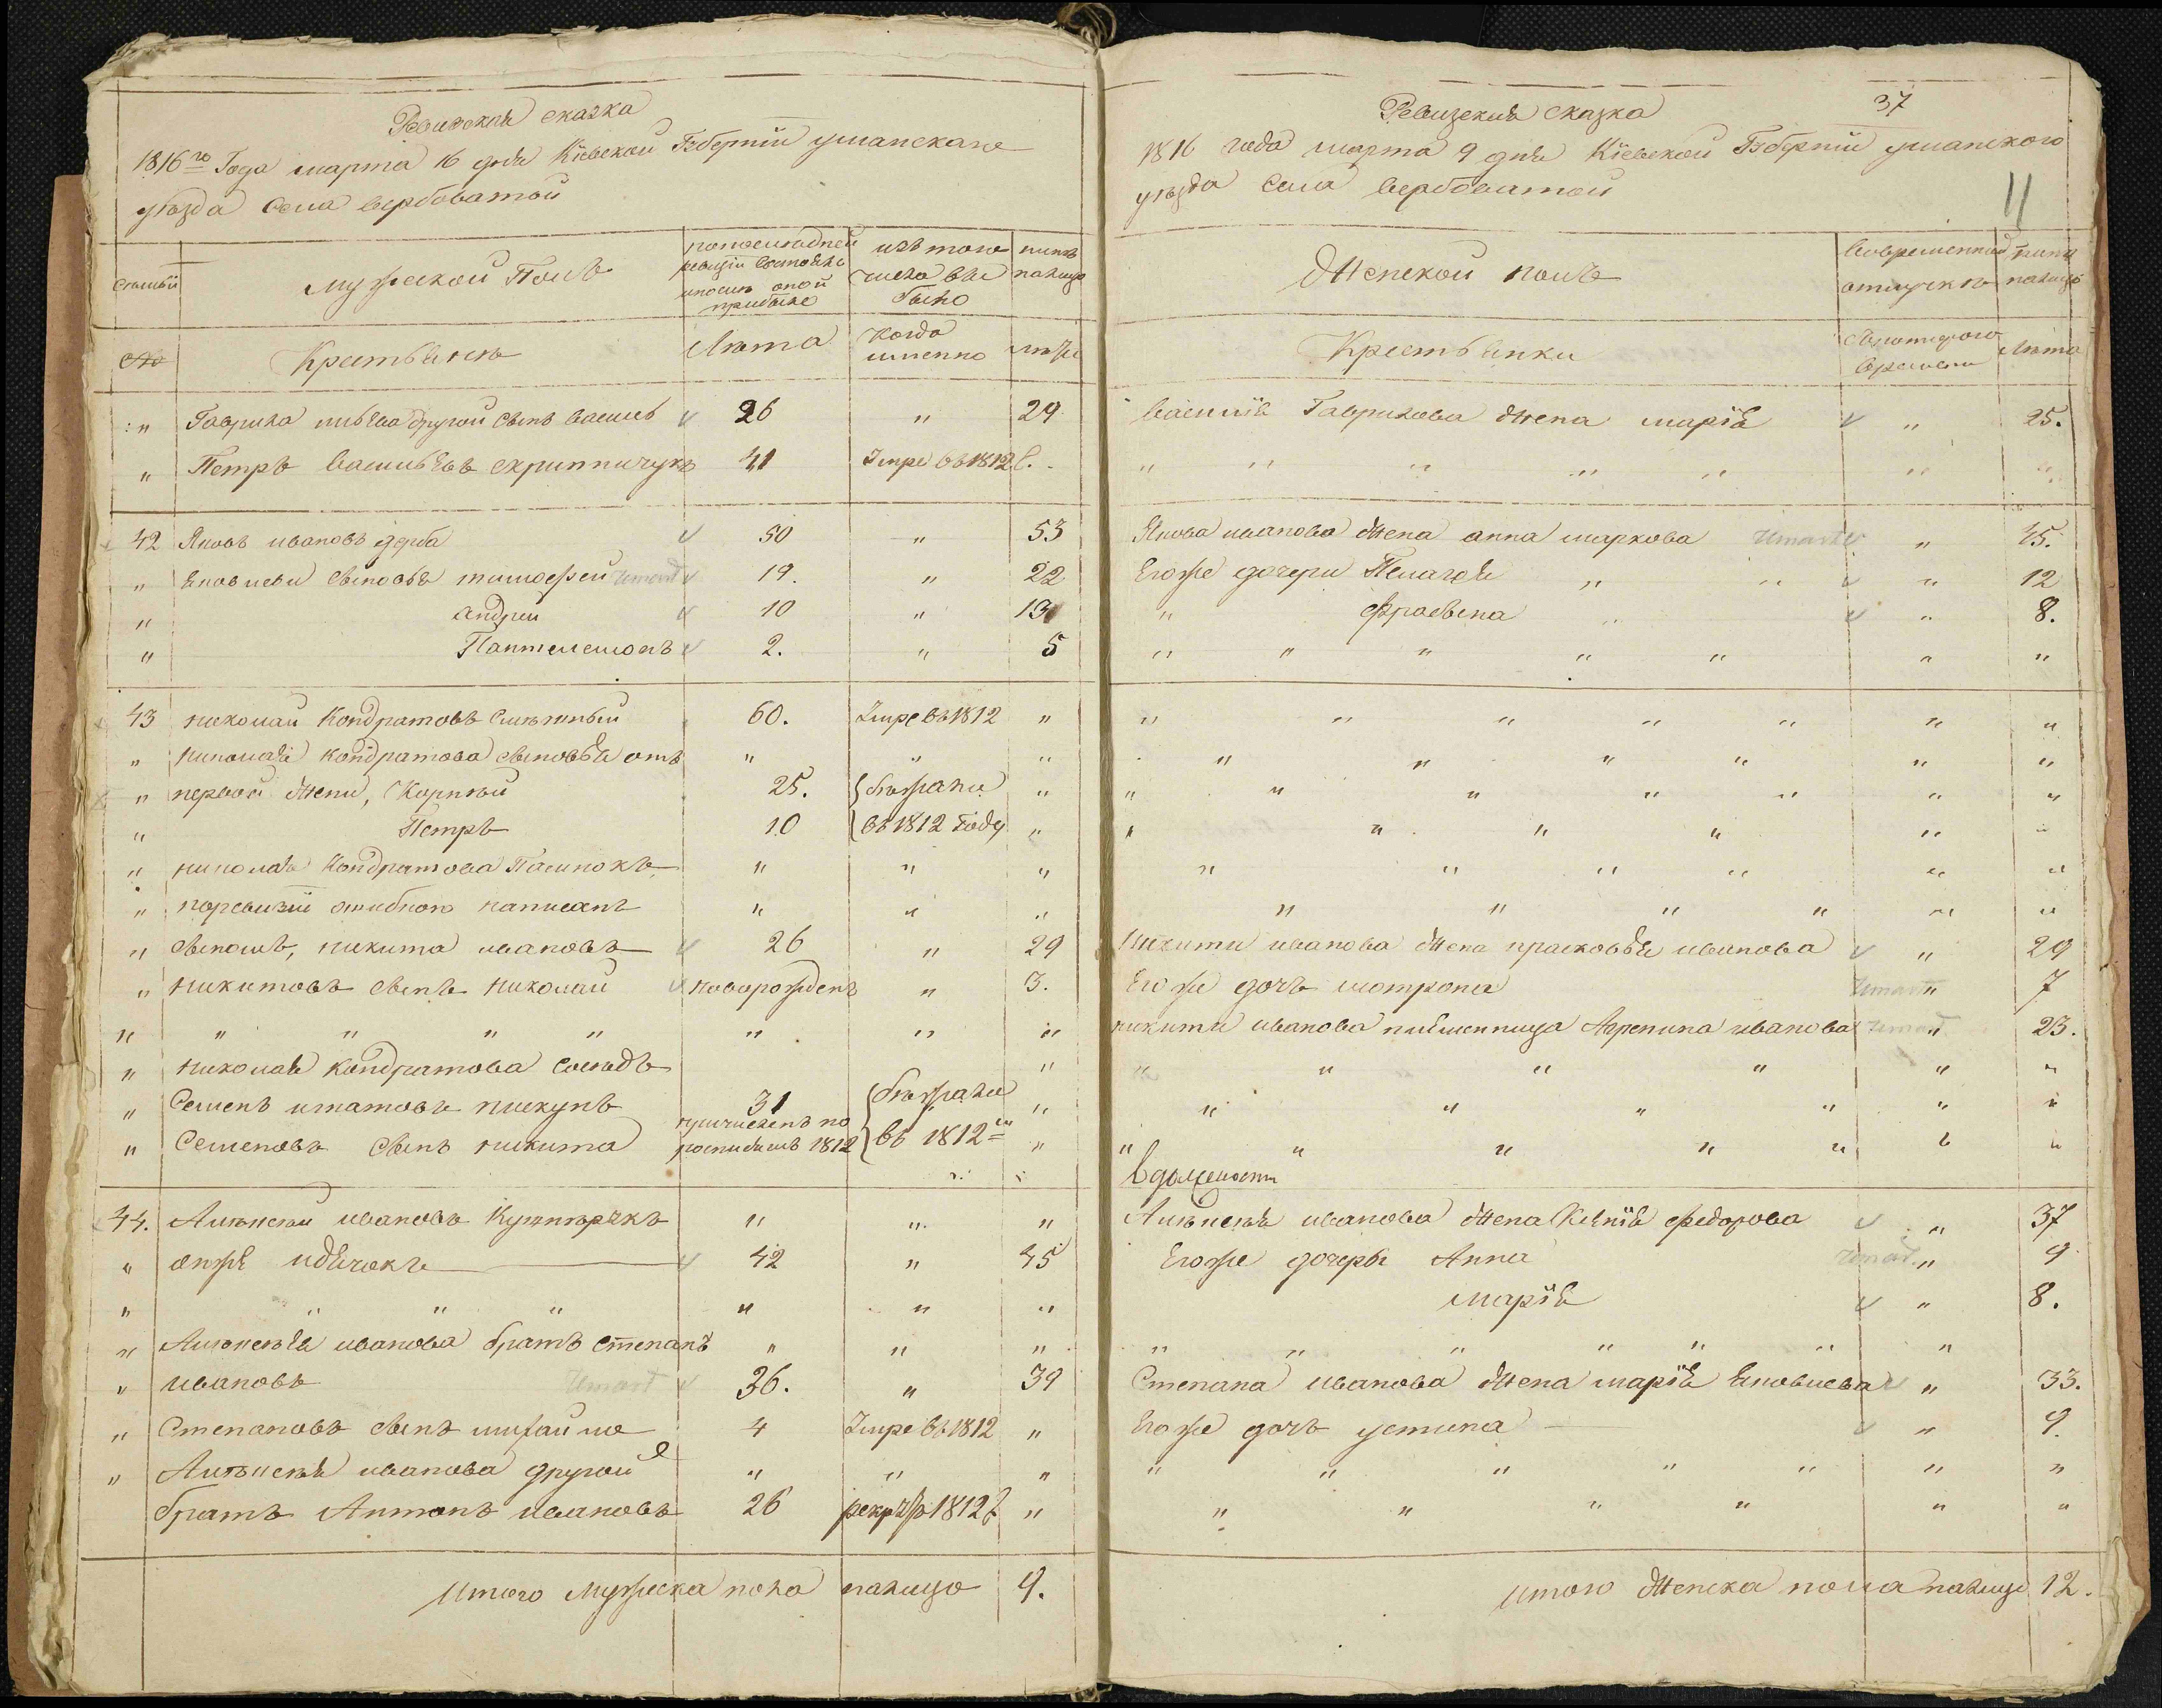 Ревизская сказка
1816го Года марта 16 дня Кіевской Губерніи уманскаго
уѣзда Села вербоватой
Семьи
мужеской Полъ
попоследней ревизіи состояло ипосле оной прибыло
изъ того числа выбыло
ныне налицо
№
Крестьянъ
Лета
Когда именно
лѣты
" Гаврила другой сынъ василь 26 " 29
" Петръ васильевъ скрипничукъ 41 Умре въ 1812 г.
42 Яковъ ивановъ 50 " 53
" Яковлевы сыновья тимофей 19. " 22
" андрей 10 " 13
" Пантелемонъ 2. " 5
43 николай Кондратовъ 60. Умре въ 1812 "
" николая кондратова сыновья отъ " " "
" первой жены, Карпъ 25. бѣжали "
" Петръ 10 въ 1812 Году "
" николая Кондратова Пасынокъ " " "
" поревизіи ошибкою написанъ " " "
" сыномъ, никита ивановъ 26 " 29
" никитовъ сынъ николай новорожденъ " 3.
" " " " " " " "
" николая кондратова соседъ "
" Семенъ пискунъ 31 бѣжали "
" Семеновъ сынъ никита 1812 въ 1812мъ "
44. Алексей ивановъ " " "
" онже 42 " 45
" " " " " " "
" Алексея иванова братъ степанъ " " "
" ивановъ 36. " 39
" Степановъ сынъ михайло 4 Умре въ 1812 "
" Алексея иванова другой " " "
братъ Антонъ ивановъ 26 1812 "
Итого мужеска пола налицо 9.
Ревизская сказка 37
1816 года марта 9 дня Кіевской Губерніи уманского
уѣзда Села вербоватой
11
Женской полъ
вовременной отлучке
ныне налицо
Крестьянки
Скотораго времени
Лета
василія Гаврилова жена марія " 25.
" " " " " " "
Якова иванова жена анна маркова " 45.
Егоже дочери Пелагея " " " 12
" Фросына " " 8.
" " " " " " "
" " " " " " "
" " " " " " "
" " " " " " "
" " " " " "
" " " " " "
" " " " " "
Никиты иванова жена прасковья иванова " 29
Егоже дочь мотрона " 7
никиты иванова племенница Агрепина иванова " 23.
" " " " " "
" " " " " "
" " " " " " "
Алексея иванова жена Ксенія федорова " 37
Егоже дочеры Анна " 9
марія " 8.
" " " " " " "
Степана иванова жена марія Яковлева " 33.
Егоже дочь устина " 9.
" " " " " " "
" " " " " "
Итого женска пола налицо 12.